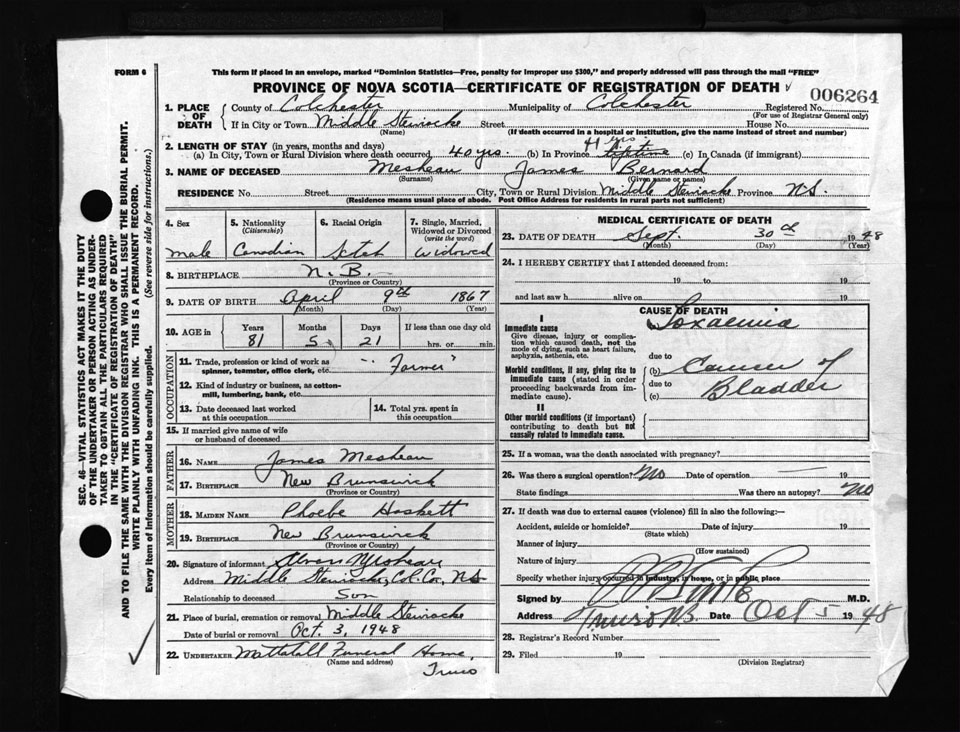 FORM 6
This form if placed in an envelope, marked "Dominion Statistics—Free, penalty for improper use $300," and properly addressed will pass through the mail "FREE"
PROVINCE OF NOVA SCOTIA—CERTIFICATE OF REGISTRATION OF DEATH
006264
1. PLACE OF DEATH County of Colchester Municipality of Colchester Registered No.
(For use of Registrar General only)
If in City or Town Middle Stewiacke Street House No.
(Name) (If death occurred in a hospital or institution, give the name instead of street and number)
2. LENGTH OF STAY (in years, months and days) 41 yrs.
(a) In City, Town or Rural Division where death occurred 40 yrs. (b) In Province lifetime (c) In Canada (if immigrant)
3. NAME OF DECEASED Mesheau James Bernard
(Surname) (Given name or names)
RESIDENCE No. Street City, Town or Rural Division Middle Stewiacke Province N.S.
(Residence means usual place of abode. Post Office Address for residents in rural parts not sufficient)
4. Sex 5. Nationality 6. Racial Origin 7. Single, Married, Widowed or Divorced
(Citizenship) (write the word)
male Canadian Scotch Widowed
8. BIRTHPLACE N.B.
(Province or Country)
9. DATE OF BIRTH April 9th 1867
(Month) (Day) (Year)
10. AGE in Years Months Days If less than one day old
81 5 21 hrs. or min.
OCCUPATION
11. Trade, profession or kind of work as spinner, teamster, office clerk, etc. Farmer
12. Kind of industry or business, as cotton-mill, lumbering, bank, etc.
13. Date deceased last worked at this occupation
14. Total yrs. spent in this occupation
15. If married give name of wife or husband of deceased
FATHER
16. NAME James Mesheau
17. BIRTHPLACE New Brunswick
(Province or Country)
MOTHER
18. MAIDEN NAME Phoebe Haskett
19. BIRTHPLACE New Brunswick
(Province or Country)
20. Signature of informant Mesheau
Address Middle Stewiacke, Col. Co., N.S.
Relationship to deceased Son
21. Place of burial, cremation or removal Middle Stewiacke
Date of burial or removal Oct. 3, 1948
22. UNDERTAKER Mattatall Funeral Home,
(Name and address) Truro
MEDICAL CERTIFICATE OF DEATH
23. DATE OF DEATH Sept. 30th 1948
(Month) (Day) (Year)
24. I HEREBY CERTIFY that I attended deceased from:
19 to 19
and last saw h alive on 19
CAUSE OF DEATH
I
Immediate cause Toxaemia
Give disease, injury or complication which caused death, not the mode of dying, such as heart failure, asphyxia, asthenia, etc.
due to
Morbid conditions, if any, giving rise to immediate cause (stated in order proceeding backwards from immediate cause).
(b) Cancer of
due to
(c) Bladder
II
Other morbid conditions (if important) contributing to death but not causally related to immediate cause.
25. If a woman, was the death associated with pregnancy?
26. Was there a surgical operation? No Date of operation — 19
State findings Was there an autopsy? No
27. If death was due to external causes (violence) fill in also the following:—
Accident, suicide or homicide? Date of injury 19
(State which)
Manner of injury
(How sustained)
Nature of injury
Specify whether injury occurred in industry, in home, or in public place
Signed by M.D.
Address Truro N.S. Date Oct 5 1948
28. Registrar's Record Number
29. Filed 19
(Division Registrar)
SEC. 46—VITAL STATISTICS ACT MAKES IT THE DUTY
OF THE UNDERTAKER OR PERSON ACTING AS UNDER-
TAKER TO OBTAIN ALL THE PARTICULARS REQUIRED
IN THE "CERTIFICATE OF REGISTRATION OF DEATH"
AND TO FILE THE SAME WITH THE DIVISION REGISTRAR WHO SHALL ISSUE THE BURIAL PERMIT.
WRITE PLAINLY WITH UNFADING INK. THIS IS A PERMANENT RECORD.
Every item of information should be carefully supplied. (See reverse side for instructions.)